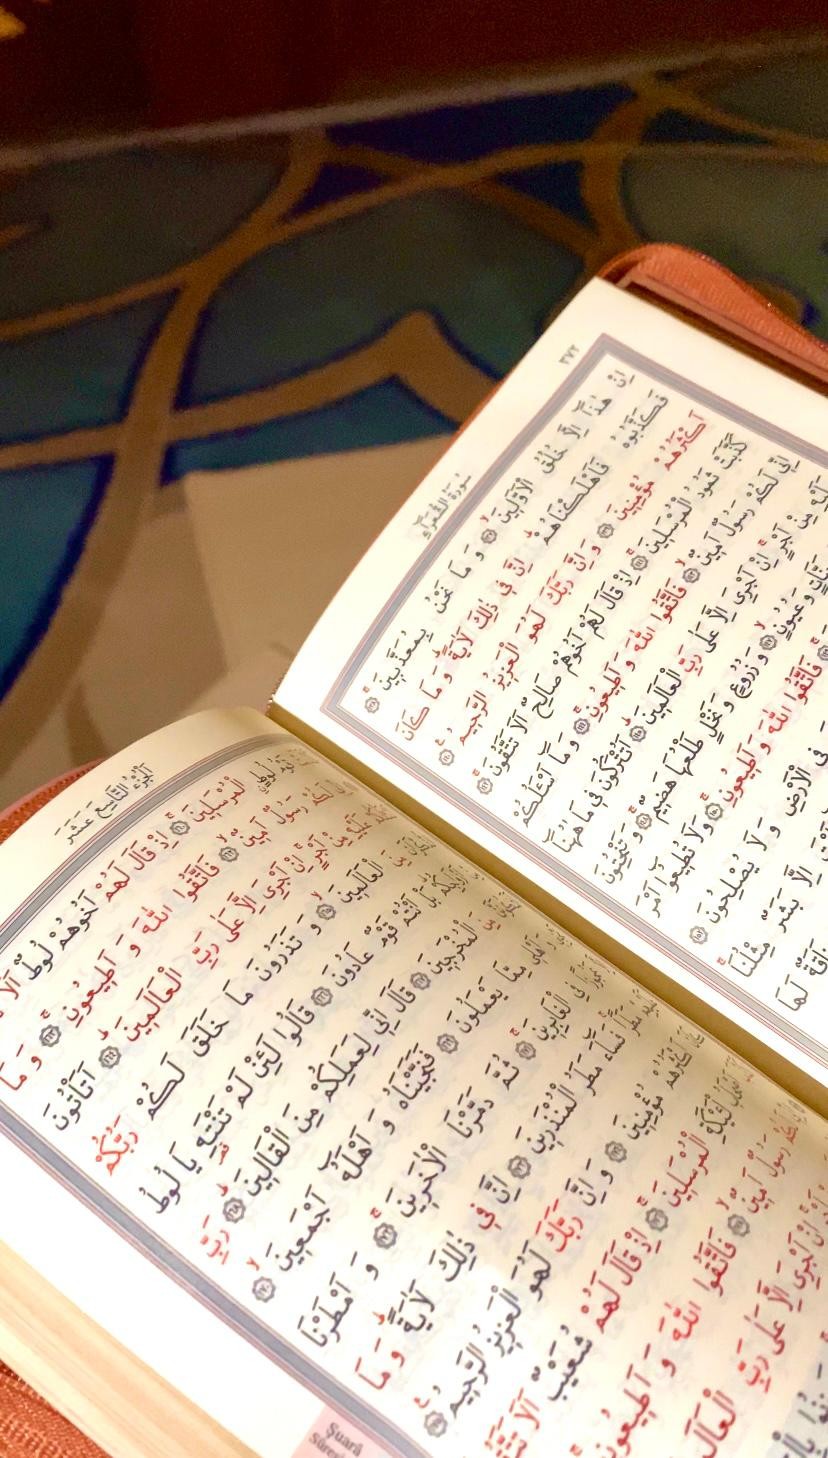 ٣٧٢
سُورَةُ الشُّعَرَاءِ
اِنْ هٰذَٓا اِلَّا خُلُقُ الْاَوَّل۪ينَۙ وَمَا نَحْنُ بِمُعَذَّب۪ينَۚ
فَكَذَّبُوهُ فَاَهْلَكْنَاهُمْۜ اِنَّ ف۪ي ذٰلِكَ لَاٰيَةًۜ وَمَا كَانَ
اَكْثَرُهُمْ مُؤْمِن۪ينَ وَاِنَّ رَبَّكَ لَهُوَ الْعَز۪يزُ الرَّح۪يمُ۟
كَذَّبَتْ ثَمُودُ الْمُرْسَل۪ينَۚ اِذْ قَالَ لَهُمْ اَخُوهُمْ صَالِحٌ اَلَا تَتَّقُونَۚ
اِنّ۪ي لَكُمْ رَسُولٌ اَم۪ينٌۙ فَاتَّقُوا اللّٰهَ وَاَط۪يعُونِۚ وَمَٓا اَسْـَٔلُكُمْ
عَلَيْهِ مِنْ اَجْرٍۚ اِنْ اَجْرِيَ اِلَّا عَلٰى رَبِّ الْعَالَم۪ينَۜ اَتُتْرَكُونَ ف۪ي مَا هٰهُنَٓا
وَعُيُونٍۙ وَزُرُوعٍ وَنَخْلٍ طَلْعُهَا هَض۪يمٌۚ وَتَنْحِتُونَ
فَاتَّقُوا اللّٰهَ وَاَط۪يعُونِۚ وَلَا تُط۪يعُٓوا اَمْرَ
فِي الْاَرْضِ وَلَا يُصْلِحُونَ
اِلَّا بَشَرٌ مِثْلُنَاۚ
نَاقَةٌ لَهَا
اَلْجُزْءُ التَّاسِعَ عَشَرَ
قَوْمُ لُوطٍ الْمُرْسَل۪ينَۚ اِذْ قَالَ لَهُمْ اَخُوهُمْ لُوطٌ اَلَا
لَكُمْ رَسُولٌ اَم۪ينٌۙ فَاتَّقُوا اللّٰهَ وَاَط۪يعُونِۚ وَمَٓا
عَلَيْهِ مِنْ اَجْرٍۚ اِنْ اَجْرِيَ اِلَّا عَلٰى رَبِّ الْعَالَم۪ينَۜ اَتَأْتُونَ
مِنَ الْعَالَم۪ينَۙ وَتَذَرُونَ مَا خَلَقَ لَكُمْ رَبُّكُمْ
بَلْ اَنْتُمْ قَوْمٌ عَادُونَ قَالُوا لَئِنْ لَمْ تَنْتَهِ يَا لُوطُ
مِنَ الْمُخْرَج۪ينَ قَالَ اِنّ۪ي لِعَمَلِكُمْ مِنَ الْقَال۪ينَۜ رَبِّ
مِمَّا يَعْمَلُونَ فَنَجَّيْنَاهُ وَاَهْلَهُٓ اَجْمَع۪ينَۙ
فِي الْغَابِر۪ينَۚ ثُمَّ دَمَّرْنَا الْاٰخَر۪ينَۚ وَاَمْطَرْنَا
مَطَرًاۚ فَسَٓاءَ مَطَرُ الْمُنْذَر۪ينَ اِنَّ ف۪ي ذٰلِكَ لَاٰيَةًۜ وَمَا
اَكْثَرُهُمْ مُؤْمِن۪ينَ وَاِنَّ رَبَّكَ لَهُوَ الْعَز۪يزُ الرَّح۪يمُ۟
لْـَٔيْكَةِ الْمُرْسَل۪ينَۚ اِذْ قَالَ لَهُمْ شُعَيْبٌ اَلَا تَتَّقُونَ
لَكُمْ رَسُولٌ اَم۪ينٌۙ فَاتَّقُوا اللّٰهَ وَاَط۪يعُونِ
اِنْ اَجْرِيَ اِلَّا عَلٰى رَبِّ الْعَالَم
Şuarâ